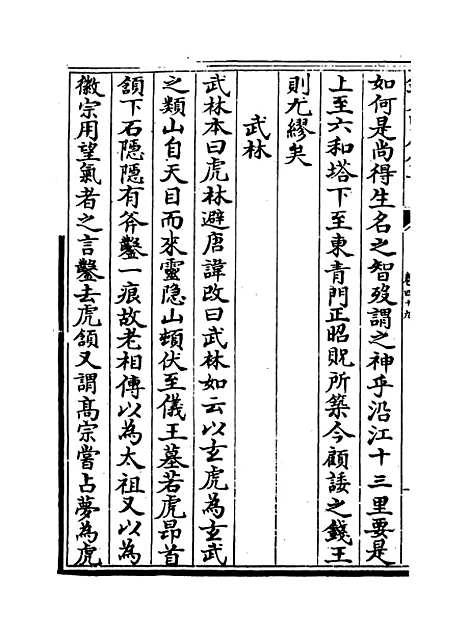 如何是尚得生名之智歿謂之神乎沿江十三里要是
上至六和塔下至東青門正昭貺所築今顧諉之錢王
則尤繆矣
武林
武林本曰虎林避唐諱改曰武林如云以玄虎為玄武
之類山自天目而來靈隱山頓伏至儀王墓若虎昂首
頷下石隱隱有斧鑿一痕故老相傳以為太祖又以為
徽宗用望氣者之言鑿去虎頷又謂髙宗嘗占夢為虎
卷四十九